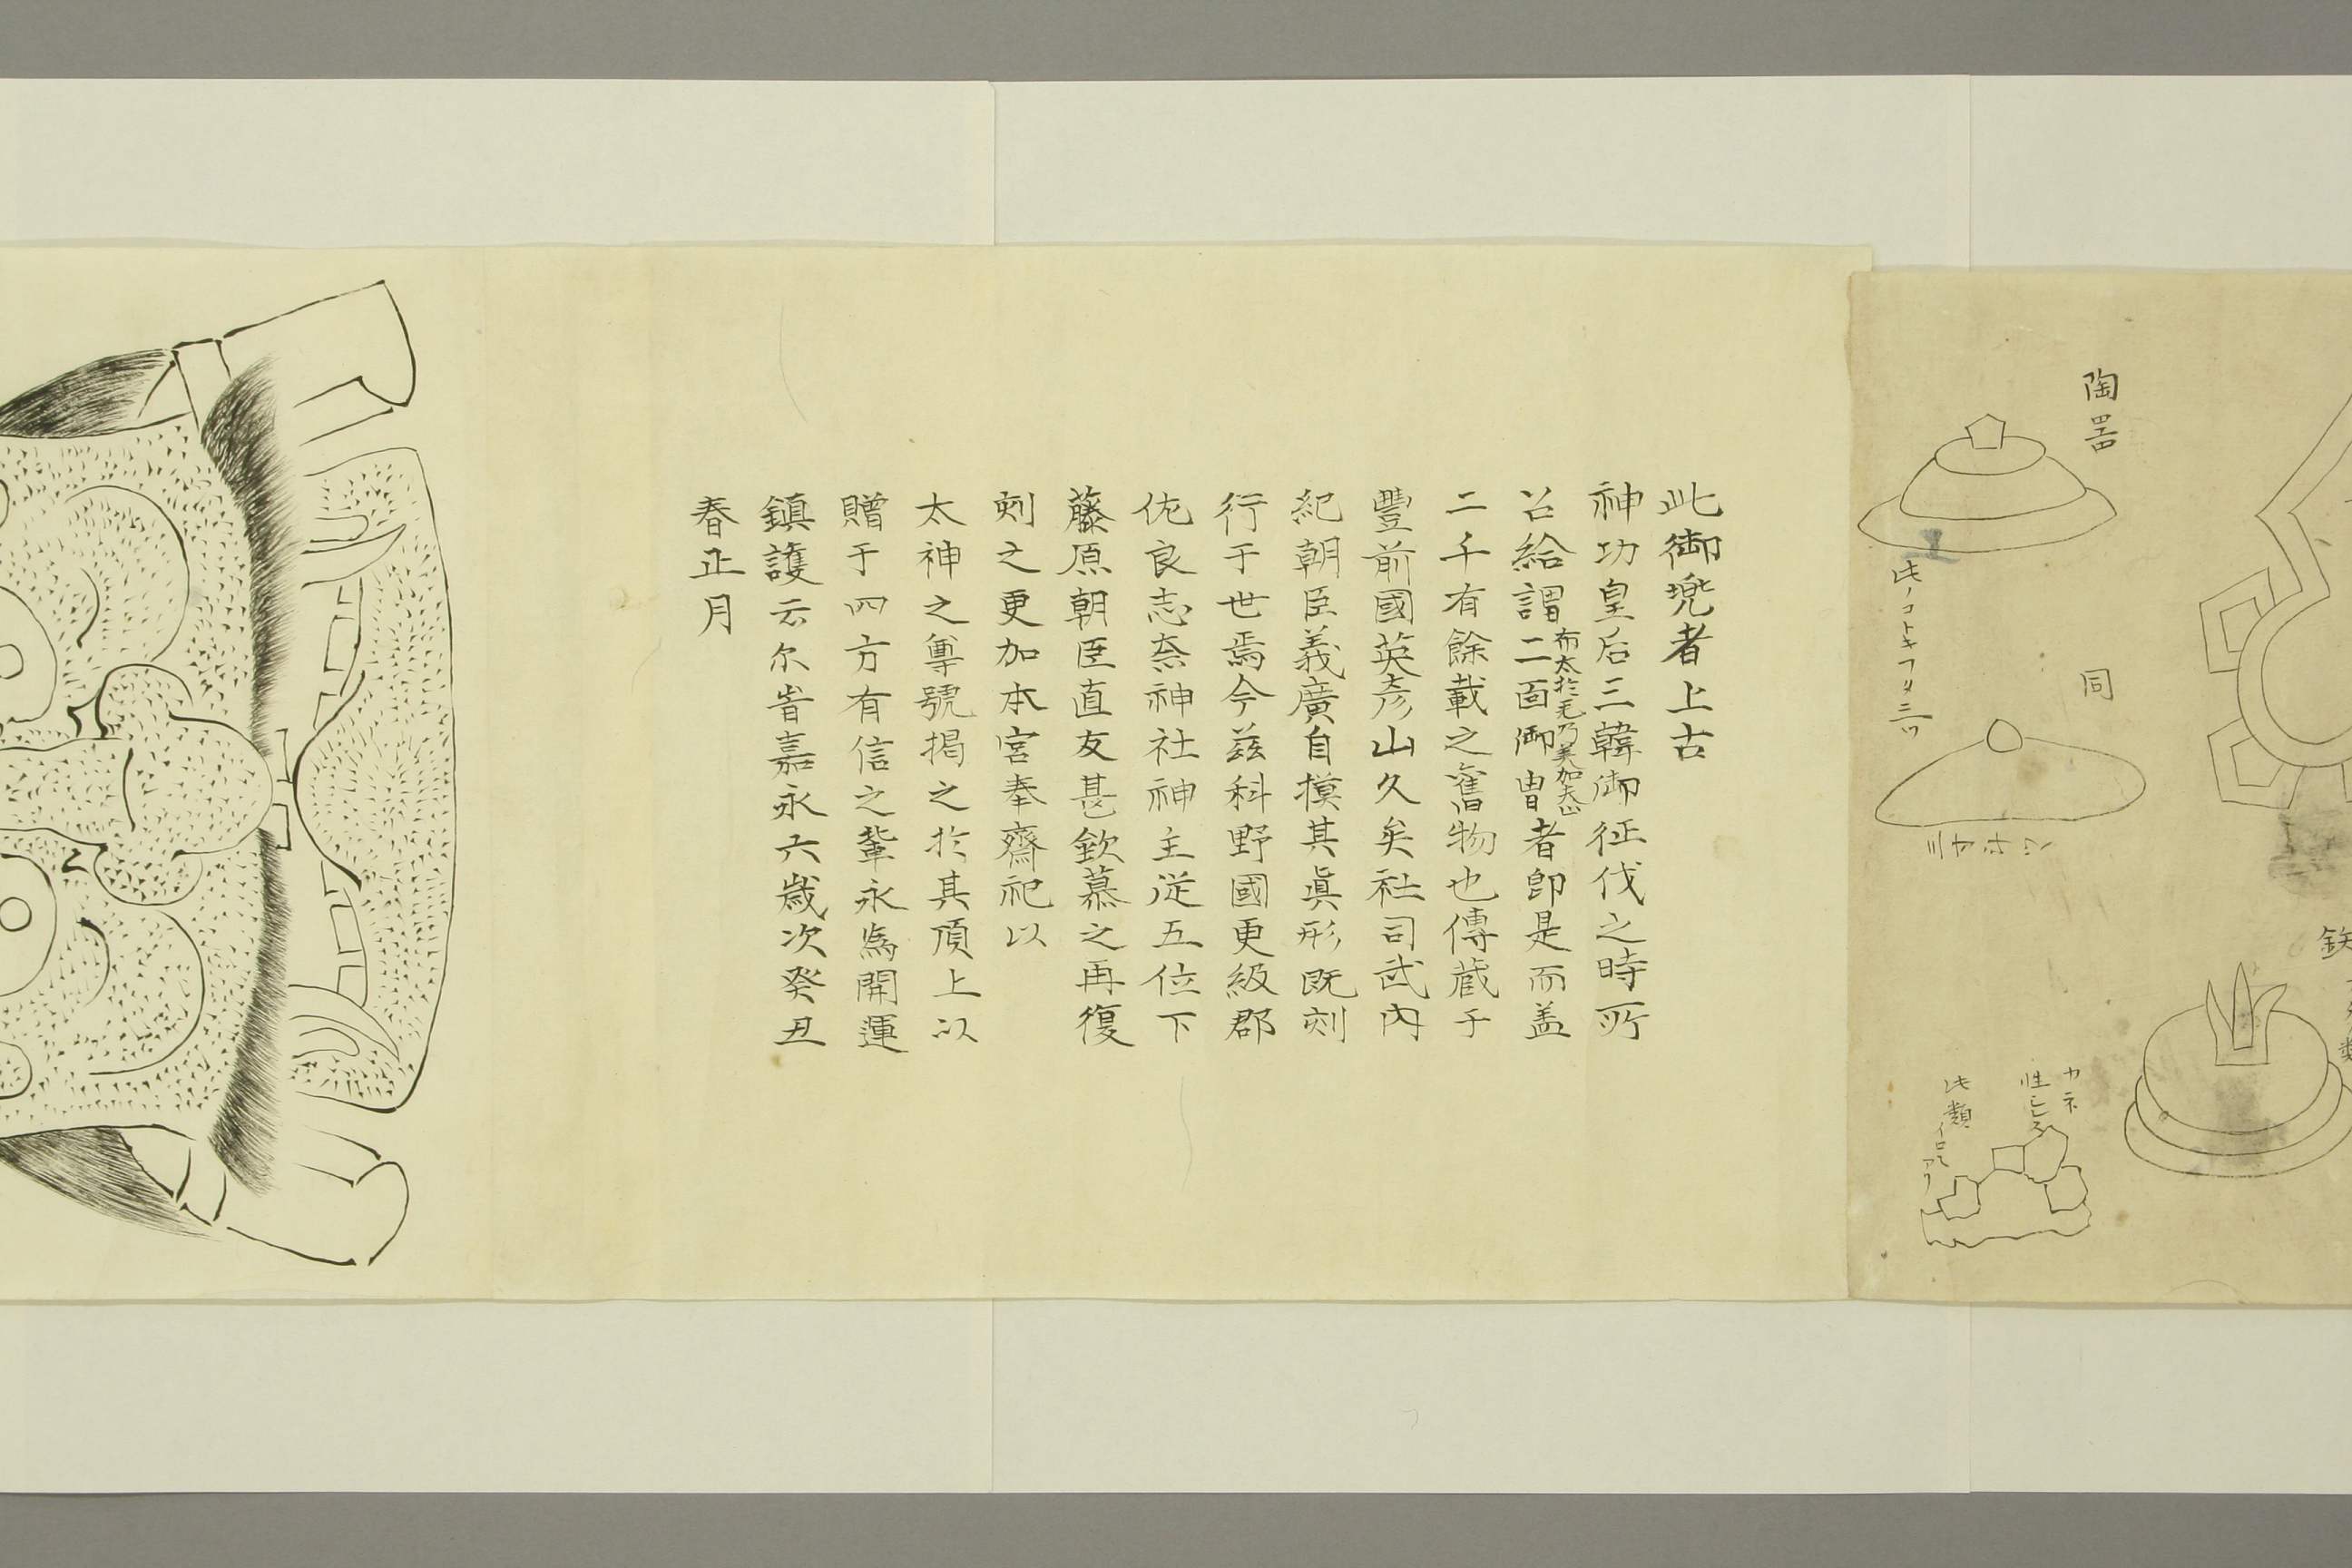 陶器
同
此ノコトキフタ三ツ
三ナサツ
カネ
性シレス
此類イロイロアリ
此御兜者上古
神功皇后三韓御征伐之時所
召給謂二面御冑者卽是而盖
布太於毛乃美加夫止
二千有餘載之舊物也傳蔵于
豐前國英彦山久矣社司武內
紀朝臣義廣自摸其眞形既刻
行于世焉今茲科野國更級郡
佐良志奈神社神主従五位下
藤原朝臣直友甚欽慕之再復
刻之更加本宮奉齋祀以
太神之尊號揭之於其頂上以
贈于四方有信之輩永為開運
鎮護云尔旹嘉永六歲次癸丑
春正月